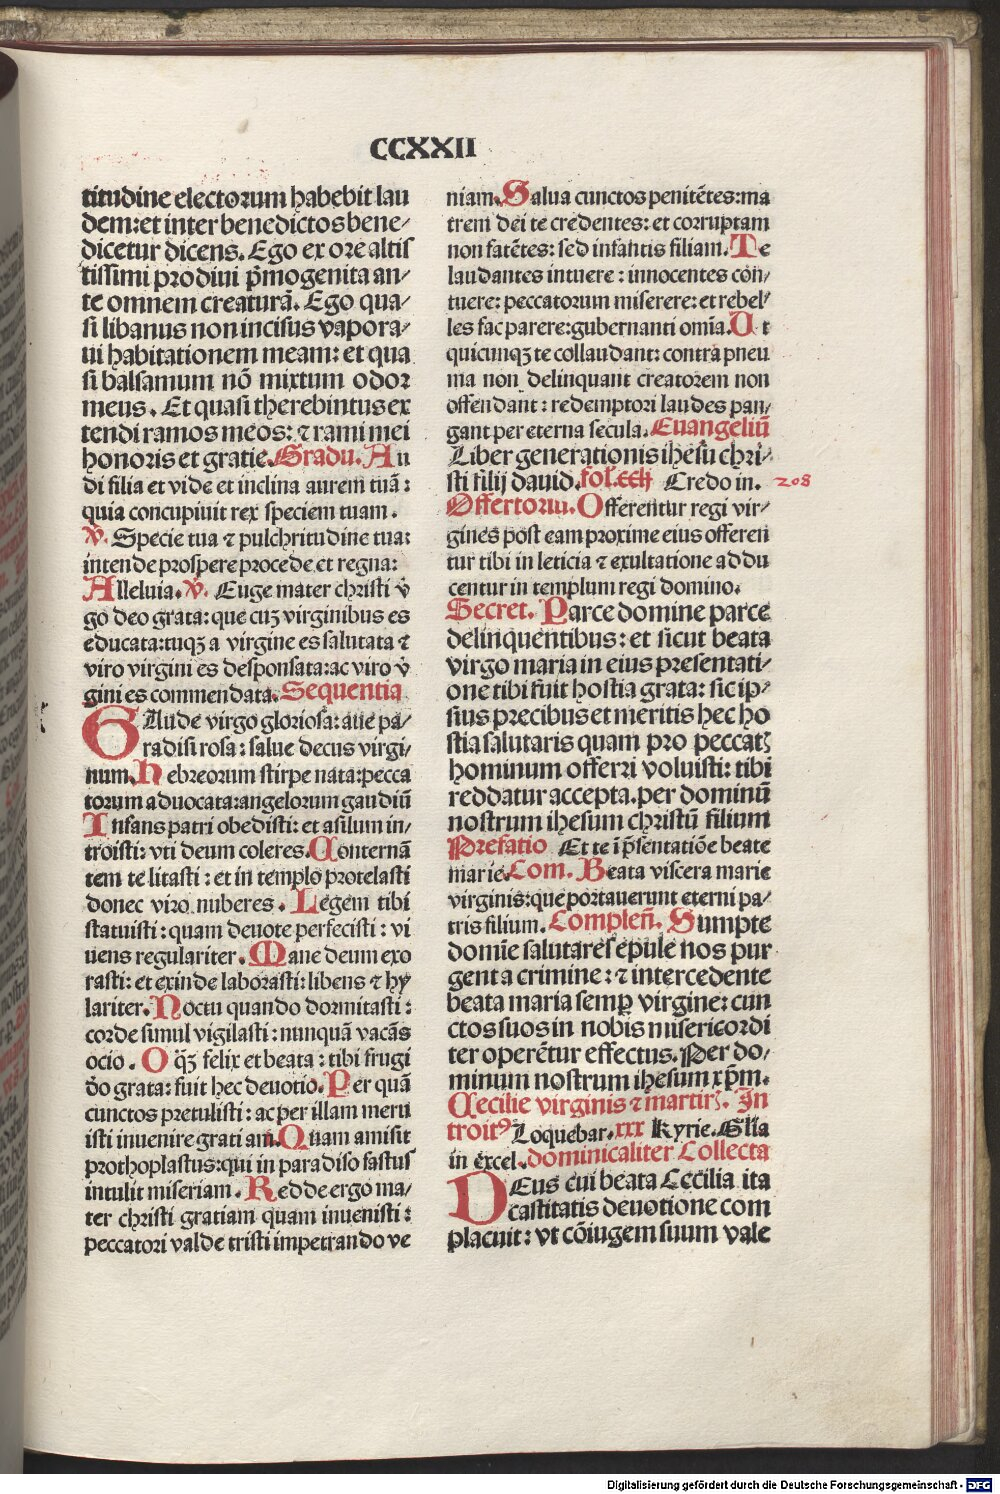 CCXXII
titudine electorum habebit lau
dem: et inter benedictos bene⸗
dicetur dicens. Ego ex ore altis
tissimi prodiui p̄mogenita an⸗
te omnem creaturā. Ego qua⸗
si libanus non incisus vapora⸗
ui habitationem meam: et qua
si balsamum nō mixtum odor
meus. Et quasi therebintus ex
tendi ramos meos: ⁊ rami mei
honoris et gratie. Gradu. Au
di filia et vide et inclina aurem tuā:
quia concupiuit rex speciem tuam.
V̷. Specie tua ⁊ pulchritudine tua:
intende prospere procede et regna:
Alleluia. V̷. Euge mater christi v̄
go deo grata: que cuʒ virginibus es
educata: tuqʒ a virgine es salutata ⁊
viro virgini es desponsata: ac viro v̄
gini es commendata. Sequentia
GAude virgo gloriosa: aue pa⸗
radisi rosa: salue decus virgi⸗
num. Hebreorum stirpe nata: pecca
torum aduocata: angelorum gaudiū
Infans patri obedisti: et asilum in⸗
troisti: vti deum coleres. Conternā
tem te litasti: et in templo protelasti
donec viro nuberes. Legem tibi
statuisti: quam deuote perfecisti: vi
uens regulariter. Mane deum exo
rasti: et exinde laborasti: libens ⁊ hy
lariter. Noctu quando dormitasti:
corde simul vigilasti: nunquā vacās
ocio. O qʒ̄ felix et beata: tibi frugi
d̄o grata: fuit hec deuotio. Per quā
cunctos pretulisti: ac per illam meru
isti inuenire gratiam. Quam amisit
prothoplastus: qui in paradiso fastus
intulit miseriam. Redde ergo ma⸗
ter christi gratiam quam inuenisti:
peccatori valde tristi impetrando ve
niam. Salua cunctos penitētes: ma
trem dei te credentes: et corruptam
non fatētes: sed infantis filiam. Te
laudantes intuere: innocentes con⸗
tuere: peccatorum miserere: et rebel⸗
les fac parere: gubernanti omīa. Ut
quicunqʒ te collaudant: contra pneu
ma non delinquant creatorem non
offendant: redemptori laudes pan⸗
gant per eterna secula. Euangeliū
Liber generationis ihesu chri⸗
sti filij dauid. fol. ccij Credo in. 208
Offertoriu. Offerentur regi vir⸗
gines post eam proxime eius offeren
tur tibi in leticia ⁊ exultatione addu
centur in templum regi domino.
Secret. Parce domine parce
delinquentibus: et sicut beata
virgo maria in eius presentati⸗
one tibi fuit hostia grata: sic ip⸗
sius precibus et meritis hec ho
stia salutaris quam pro peccatʒ
hominum offerri voluisti: tibi
reddatur accepta. per dominū
nostrum ihesum christū filium
Prefatio Et te ī p̄sentatiōe beate
marie. Com. Beata viscera marie
virginis: que portauerunt eterni pa⸗
tris filium. Compleñ. Sumpte
domīe salutares epule nos pur
gent a crimine: ⁊ intercedente
beata maria semꝑ virgine: cun
ctos suos in nobis misericordi
ter operētur effectus. Per do⸗
minum nostrum ihesum xp̄m.
Cecilie virginis ⁊ martirʒ. In
troitꝰ Loquebar. xxx Kyrie. Glīa
in excel. dominicaliter Collecta
DEus cui beata Cecilia ita
castitatis deuotione com
placuit: vt cōiugem suum vale
Digitalisierung gefördert durch die Deutsche Forschungsgemeinschaft - DFG